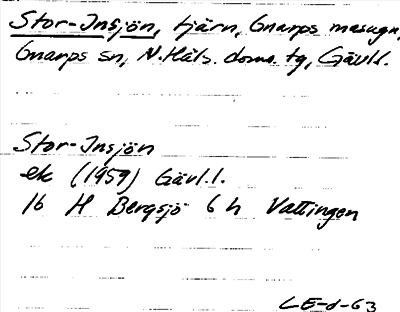 Stor-Insjön, tjärn, Gnarps masugn,
Gnarps sn, N. Häls. doms. tg, Gävl.l.
Stor-Insjön
ek (1959) Gävl.l.
16 H Bergsjö 6 h Vattingen
LE-d-63